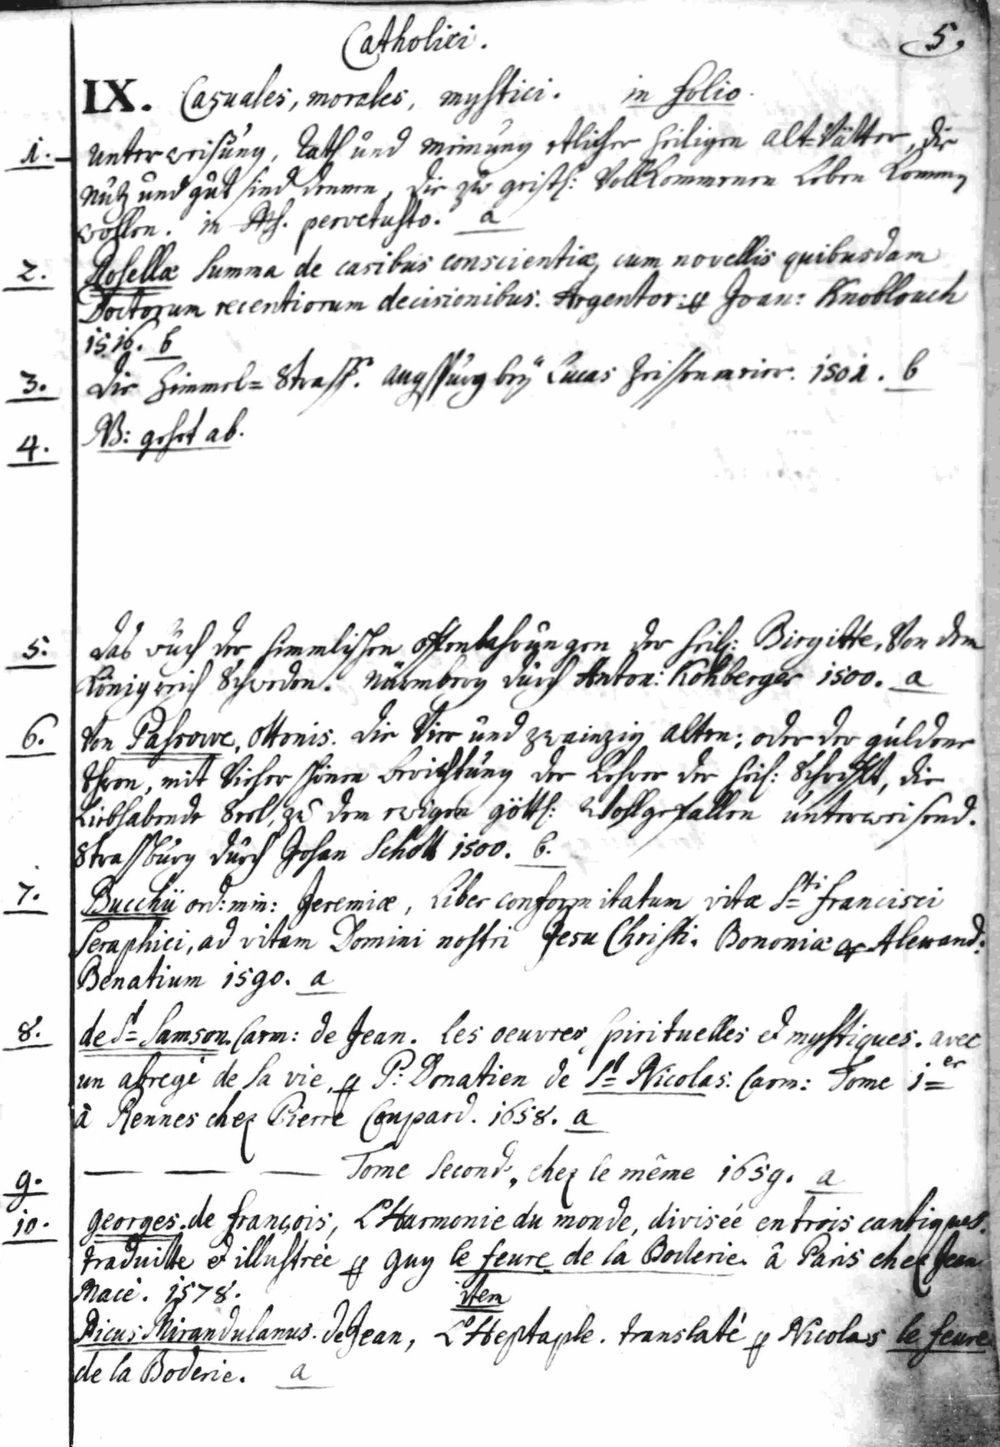 Catholici.
5.
IX. Casuales, morales, mystici. in folio.
1. Unterweisung, Rath und meinung etlicher heiligen Alt-Vätter, die
nutz und gut sind denen, die zu geistl: Vollkommenen Leben komen
wollen. in MS. pervetusto. a
2. Rosellæ Summa de casibus conscientiæ, cum novellis quibusdam
Doctorum recentiorum decisionibus. Argentor: Joan: Knoblouch
1516. b
3. Die Himmel= Strass. Augspurg beÿ Lucas Zeissenmeier. 1501. b
4. NB: gehet ab.
5. Das buch der himmlischen offenbahrungen der heil: Birgitte, Von dem
Königreich Schweden. Nürmberg durch Anton: Kohberger 1500. a
6. Von Passowe, Ottonis. die Vier und zwainzig Alten; oder der güldene
thron, mit Vieler schönen berichtung der Lehrer der heil: Schrifft, die
Liebhabende Seel, zu dem ewigen göttl: Wohlgefallen unterweisend.
Strassburg durch Johan Schott 1500. b.
7. Bucchii ord: min: Jeremiæ, Liber conformitatum vitæ Sti francisci
Seraphici, ad vitam Domini nostri Jesu Christi. Bononiæ Alexand:
Benatium 1590. a
8. de St Samson. Carm: de Jean. les oeuvres spirituelles et mystiques. avec
un abregé de sa vie, P: Donatien de St Nicolas. Carm: Tome 1er
à Rennes chez Pierre Coupard. 1658. a
9. — — — Tome second, chez le même 1659. a
10. georges. de françois, L'Harmonie du monde, divisée en trois cantiques.
traduitte et illustrée guy le feure de la Boderie. à Paris chez Jean
Macé. 1578.
item
Picus Mirandulanus. de Jean, L'Heptaple. translaté Nicolas le feure
de la Boderie. a